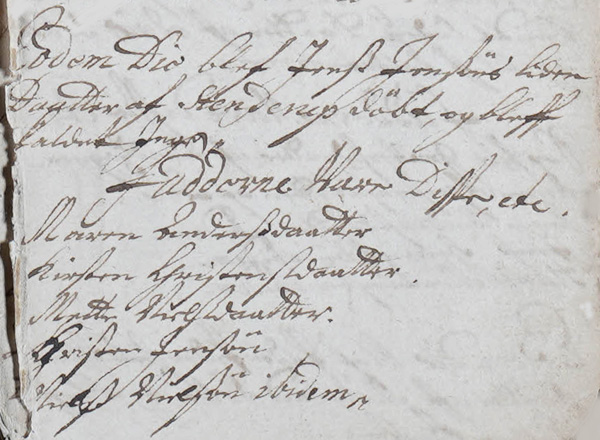 Eodem Die blef Jens Jensøns liden
Daatter af Stenderup döbt, og bleff
kaldet
Faddorne Vare Disse, etc.
Maren Andersdaatter
Kirsten Christensdaatter.
Mette Nielsdaatter.
Christen Jensön
Niels Nielsön ibidem